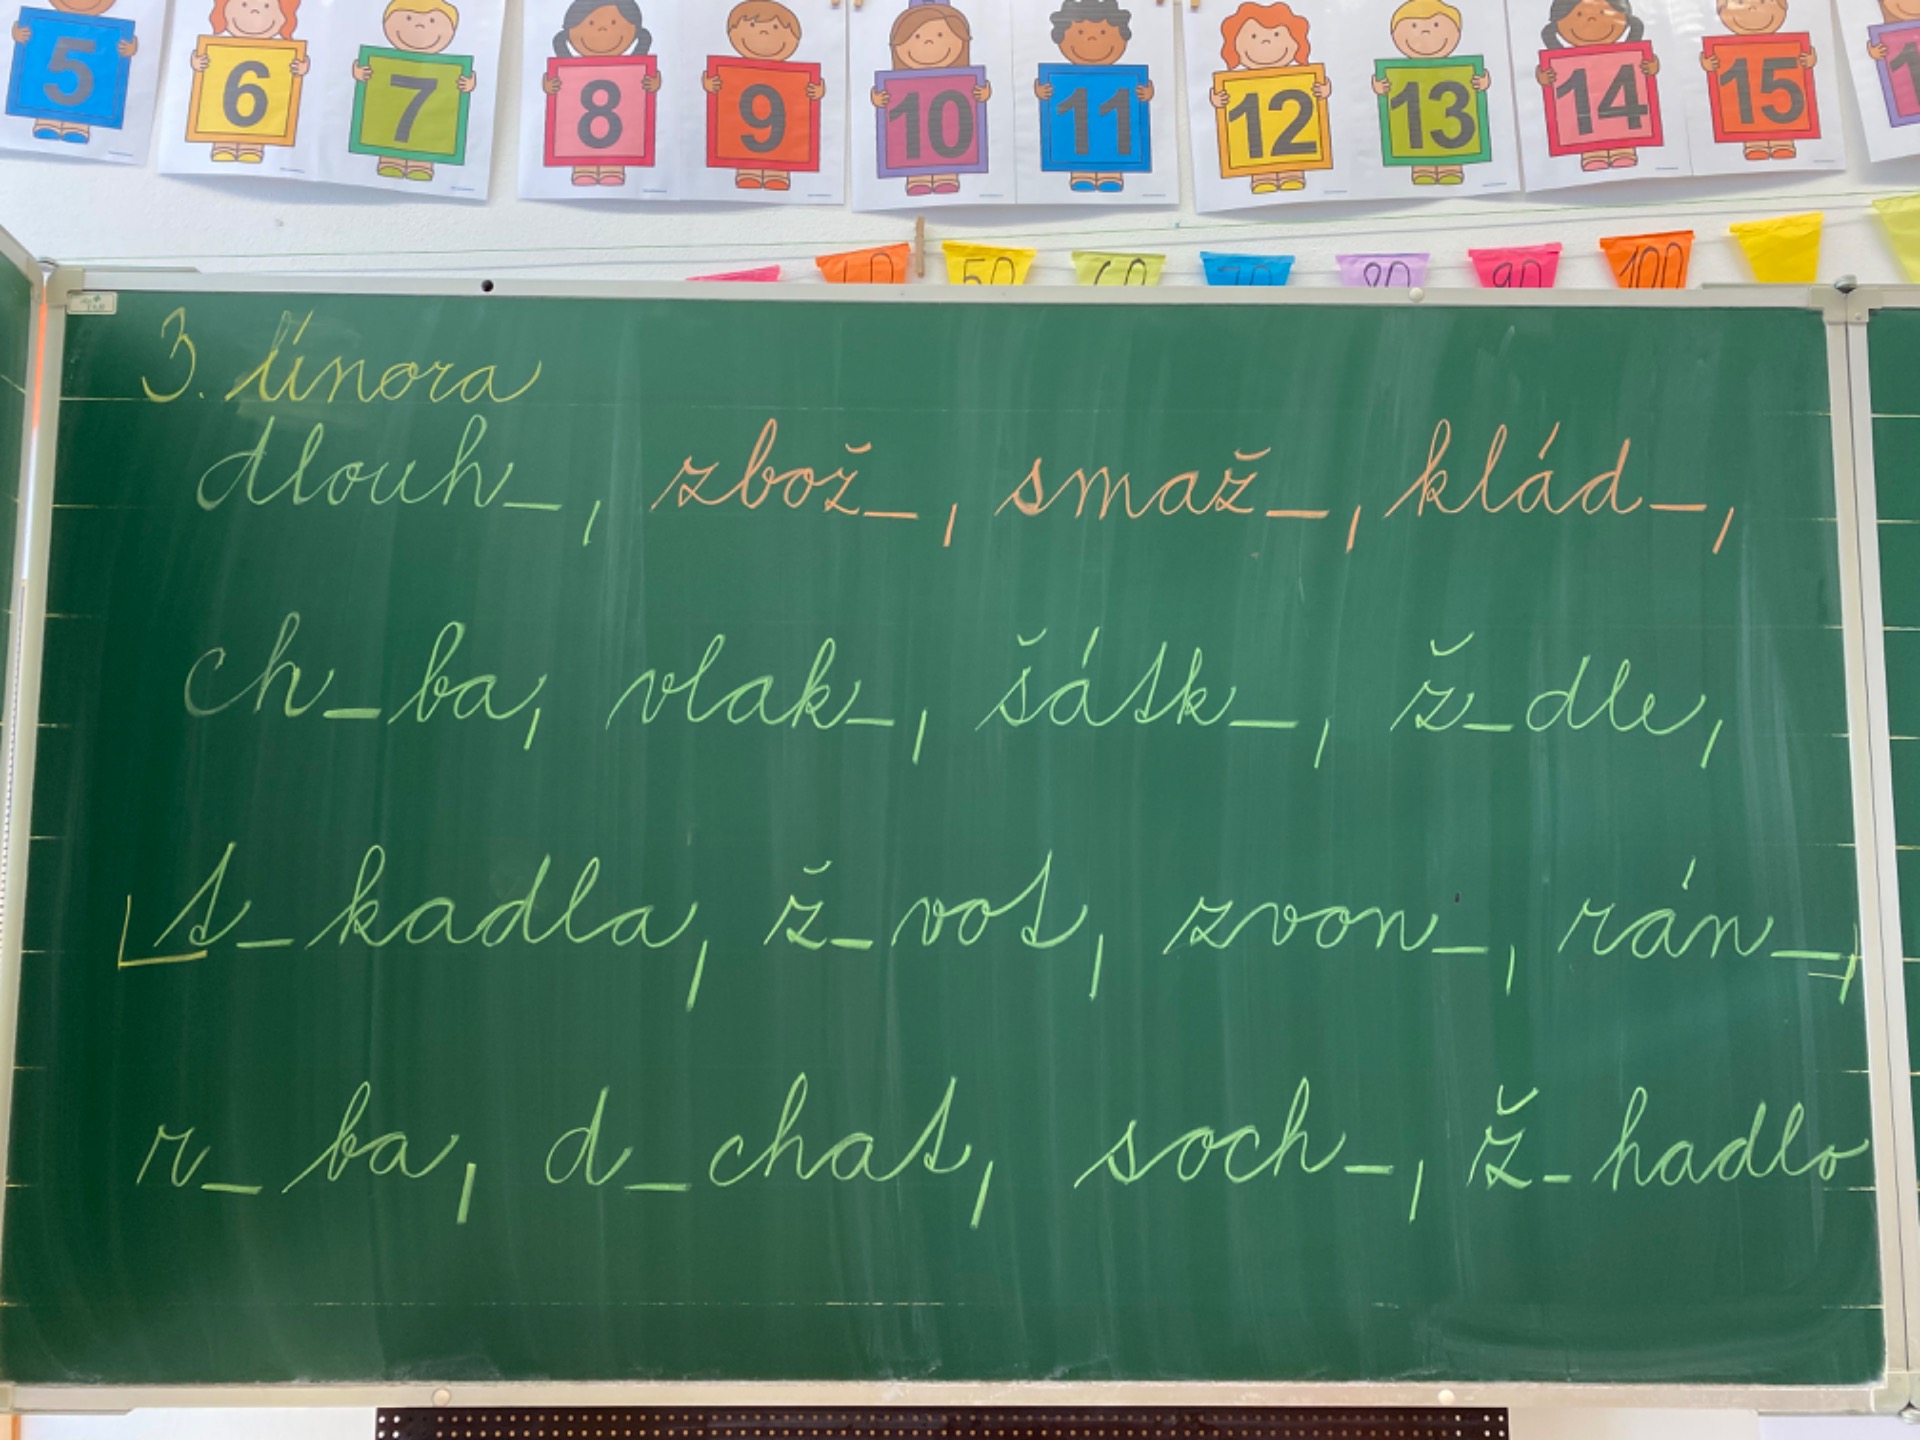 5 6 7 8 9 10 11 12 13 14 15 1
40 50 60 70 80 90 100
3. února
dlouh_, zbož_, smaž_, klád_,
ch_ba, vlak_, šátk_, ž_dle,
t_kadla, ž_vot, zvon_, rán_,
r_ba, d_chat, soch_, ž_hadlo